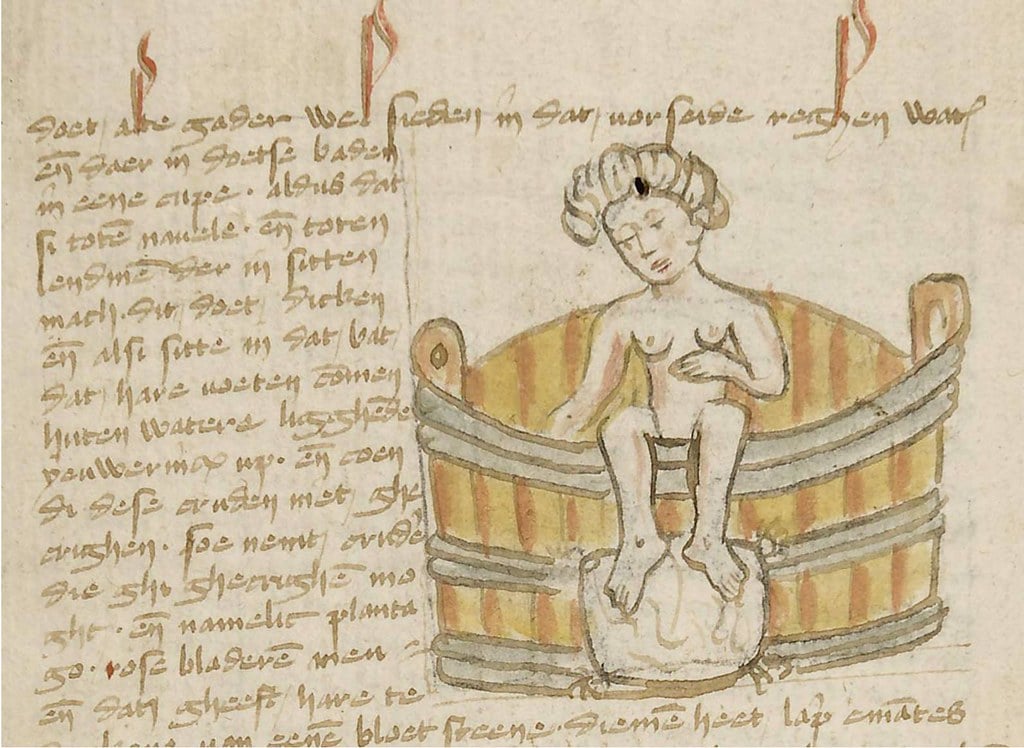 doet alte gader wel sieden in dat vorseide reghen wat
en̄ daer in doetse baden
in eene cupe · aldus dat
si totē navele · en̄ toten
lendinē der in sitten
mach · dit doet dicken
en̄ alsi sitte in dat bat
dat hare voeten cōmen
huten watere ligghēde
en̄ coen
di dese cruden niet ghe
crighen · soe nemt crudē
die ghi ghecrighē mo
ght · en̄ namelic planta
go · rose bladerē men
en̄ dat gheeft hare te
van eenē bloetsteene diemē heet lap̄ emātes